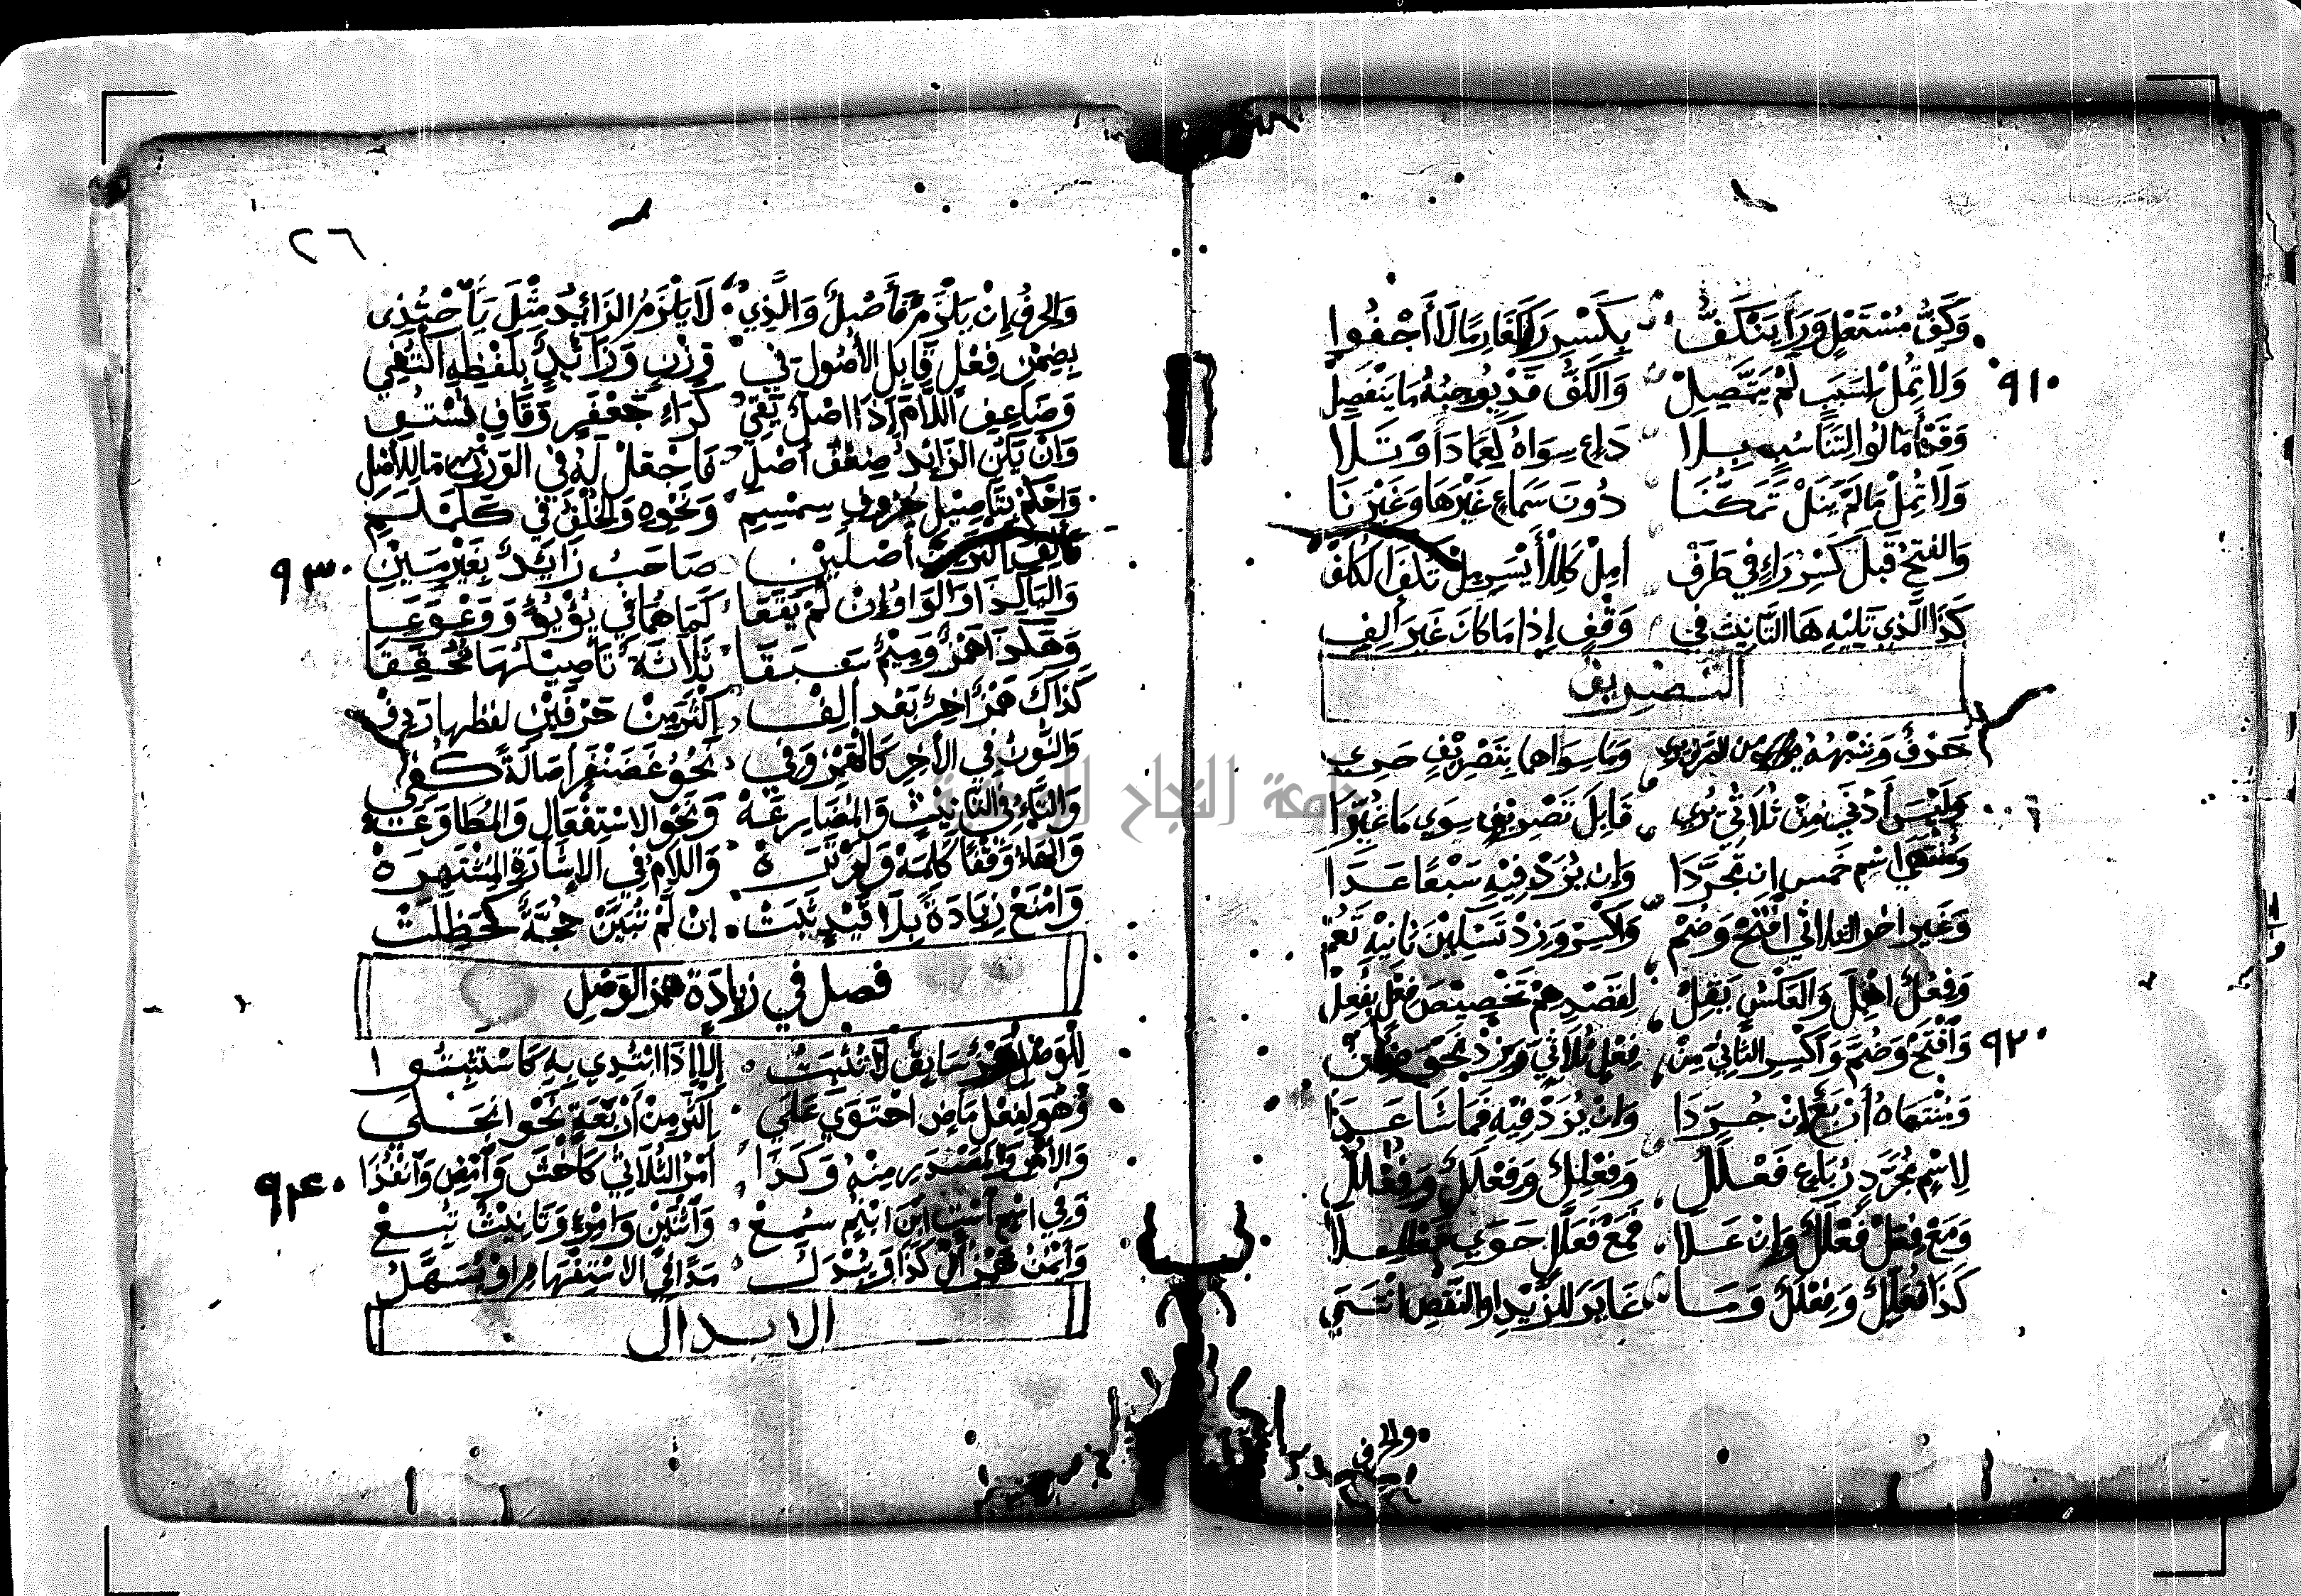 وَكَفُّ مُسْتَعْلٍ وَرَا يَنْكَفُّ بِكَسْرِ رَا كَغَارِمًا لَا أَجْفُوا
٩١٠ وَلَا تُمِلْ لِسَبَبٍ لَمْ يَتَّصِلْ وَالكَفُّ قَدْ يُوجِبُهُ مَا يَنْفَصِلْ
وَقَدْ أَمَالُوا لِتَنَاسُبٍ بِلَا دَاعٍ سِوَاهُ كَعِمَادَا وَتَلَا
وَلَا تُمِلْ مَا لَمْ يَنَلْ تَمَكُّنَا دُونَ سَمَاعٍ غَيْرَهَا وَغَيْرَنَا
وَالفَتْحَ قَبْلَ كَسْرِ رَاءٍ فِي طَرَفْ أَمِلْ كَلِلْأَيْسَرِ مِلْ تُكْفَ الكُلَفْ
كَذَا الَّذِي تَلِيْهِ هَا التَّانِيثِ فِي وَقْفٍ إِذَا مَا كَانَ غَيْرَ أَلِفِ
التَّصْرِيفُ
حَرْفٌ وَشِبْهُهُ مِنَ الصَّرْفِ بَرِي وَمَا سِوَاهُمَا بِتَصْرِيْفٍ حَرِي
وَلَيْسَ أَدْنَى مِنْ ثُلَاثِيٍّ يُرَى قَابِلَ تَصْرِيفٍ سِوَى مَا غُيِّرَا
وَمُنْتَهَى اسْمٍ خَمْسٌ إِنْ تَجَرَّدَا وَإِنْ يُزَدْ فِيْهِ سَبْعًا عَدَا
وَغَيْرَ اخِرِ الثلاثي افْتَحْ وَضُمْ وَاكْسِرْ وَزِدْ تَسْكِيْنَ ثَانِيْهِ تَعُمْ
وَفِعُلٌ أُهْمِلَ وَالعَكْسُ يَقِلْ لِقَصْدِهِمْ تَخْصِيْصَ فِعْلٍ بِفُعِلْ
٩٢٠ وَافْتَحْ وَضُمَّ وَاكْسِرِ الثَّانِيَ مِنْ فِعْلٍ ثُلَاثِيٍّ وَزِدْ نَحْوَ ضُمِنْ
وَمُنْتَهَاهُ أَرْبَعٌ إِنْ جُرِّدَا وَإِنْ يُزَدْ فِيْهِ فَمَا سِتًّا عَدَا
لِاسْمٍ مُجَرَّدٍ رُبَاعٍ فَعْلَلُ وَفِعْلِلٌ وَفِعْلَلٌ وَفُعْلُلُ
وَمَعْ فِعَلٍّ فُعْلَلٌ وَإِنْ عَلَا فَمَعْ فَعَلَّلٍ حَوَى فَعْلَلِلَا
كَذَا فُعَلِّلٌ وَفِعْلَلٌّ وَمَا غَايَرَ لِلزَّيْدِ اوِ النَّقْصِ انْتَمَى
والحرف
٢٦
وَالحَرْفُ إِنْ يَلْزَمْ فَأَصْلٌ وَالَّذِي لَا يَلْزَمُ الزَّائِدُ مِثْلُ تَا احْتُذِي
بِضِمْنِ فِعْلٍ قَابِلِ الأُصُولَ فِي وَزْنٍ وَزَائِدٌ بِلَفْظِهِ اكْتُفِي
وَضَاعِفِ اللَّامَ إِذَا اصْلٌ بَقِي كَرَاءِ جَعْفَرٍ وَقَافِ فُسْتُقِ
وَإِنْ يَكُنِ الزَّائِدُ ضِعْفَ أَصْلِ فَاجْعَلْ لَهُ فِي الوَزْنِ مَا لِلأَصْلِ
وَاحْكُمْ بِتَأْصِيْلِ حُرُوفِ سِمْسِمِ وَنَحْوِهِ وَالخُلْفُ فِي كَلَمْلَمِ
٩٣٠ فَأَلِفٌ أَكْثَرَ مِنْ أَصْلَيْنِ صَاحَبَ زَائِدٌ بِغَيْرِ مَيْنِ
وَاليَا كَذَا وَالوَاوُ إِنْ لَمْ يَقَعَا كَمَا هُمَا فِي يُؤْيُؤٍ وَوَعْوَعَا
وَهَكَذَا هَمْزٌ وَمِيْمٌ سَبَقَا ثَلَاثَةً تَأْصِيْلُهَا تَحَقَّقَا
كَذَاكَ هَمْزٌ اخِرٌ بَعْدَ أَلِفْ أَكْثَرَ مِنْ حَرْفَيْنِ لفظها رَدِفْ
وَالنُّونُ فِي الآخِرِ كَالهَمْزِ وَفِي نَحْوِ غَضَنْفَرٍ أَصَالَةً كُفِي
وَالتَّاءُ فِي التَّانِيْثِ وَالمُضَارَعَهْ وَنَحْوِ الِاسْتِفْعَالِ وَالمُطَاوَعَهْ
وَالهَاءُ وَقْفًا كَلِمَهْ وَلَمْ تَرَهْ وَاللَّامُ فِي الاشَارَةِ المُشْتَهِرَهْ
وَامْنَعْ زِيَادَةً بِلَا قَيْدٍ ثَبَتْ إِنْ لَمْ تُبَيَّنْ حُجَّةٌ كَحَظِلَتْ
فصل في زيادَة همز الوَصْلِ
لِلْوَصْلِ هَمْزٌ سَابِقٌ لَا يَثْبُتُ إِلَّا إِذَا ابْتُدِي بِهِ كَاسْتَثْبِتُوا
وَهُوَ لِفِعْلٍ مَاضٍ احْتَوَى عَلَى أَكْثَرَ مِنْ أَرْبَعَةٍ نَحْوُ انْجَلَى
٩٤٠ وَالأَمْرِ وَالمَصْدَرِ مِنْهُ وَكَذَا أَمْرُ الثُّلَاثِي كَاخْشَ وَامْضِ وَانْفُذَا
وَفِي اسْمٍ اسْتٍ ابْنٍ ابْنِمٍ سُمِعْ وَاثْنَيْنِ وَامْرِئٍ وَتَانِيْثٍ تَبِعْ
وَايْمُنُ هَمْزُ أَلْ كَذَا وَيُبْدَلُ مَدًّا فِي الاسْتِفْهَامِ أَوْ يُسَهَّلُ
الابدال
جامعة النجاح الوطنية